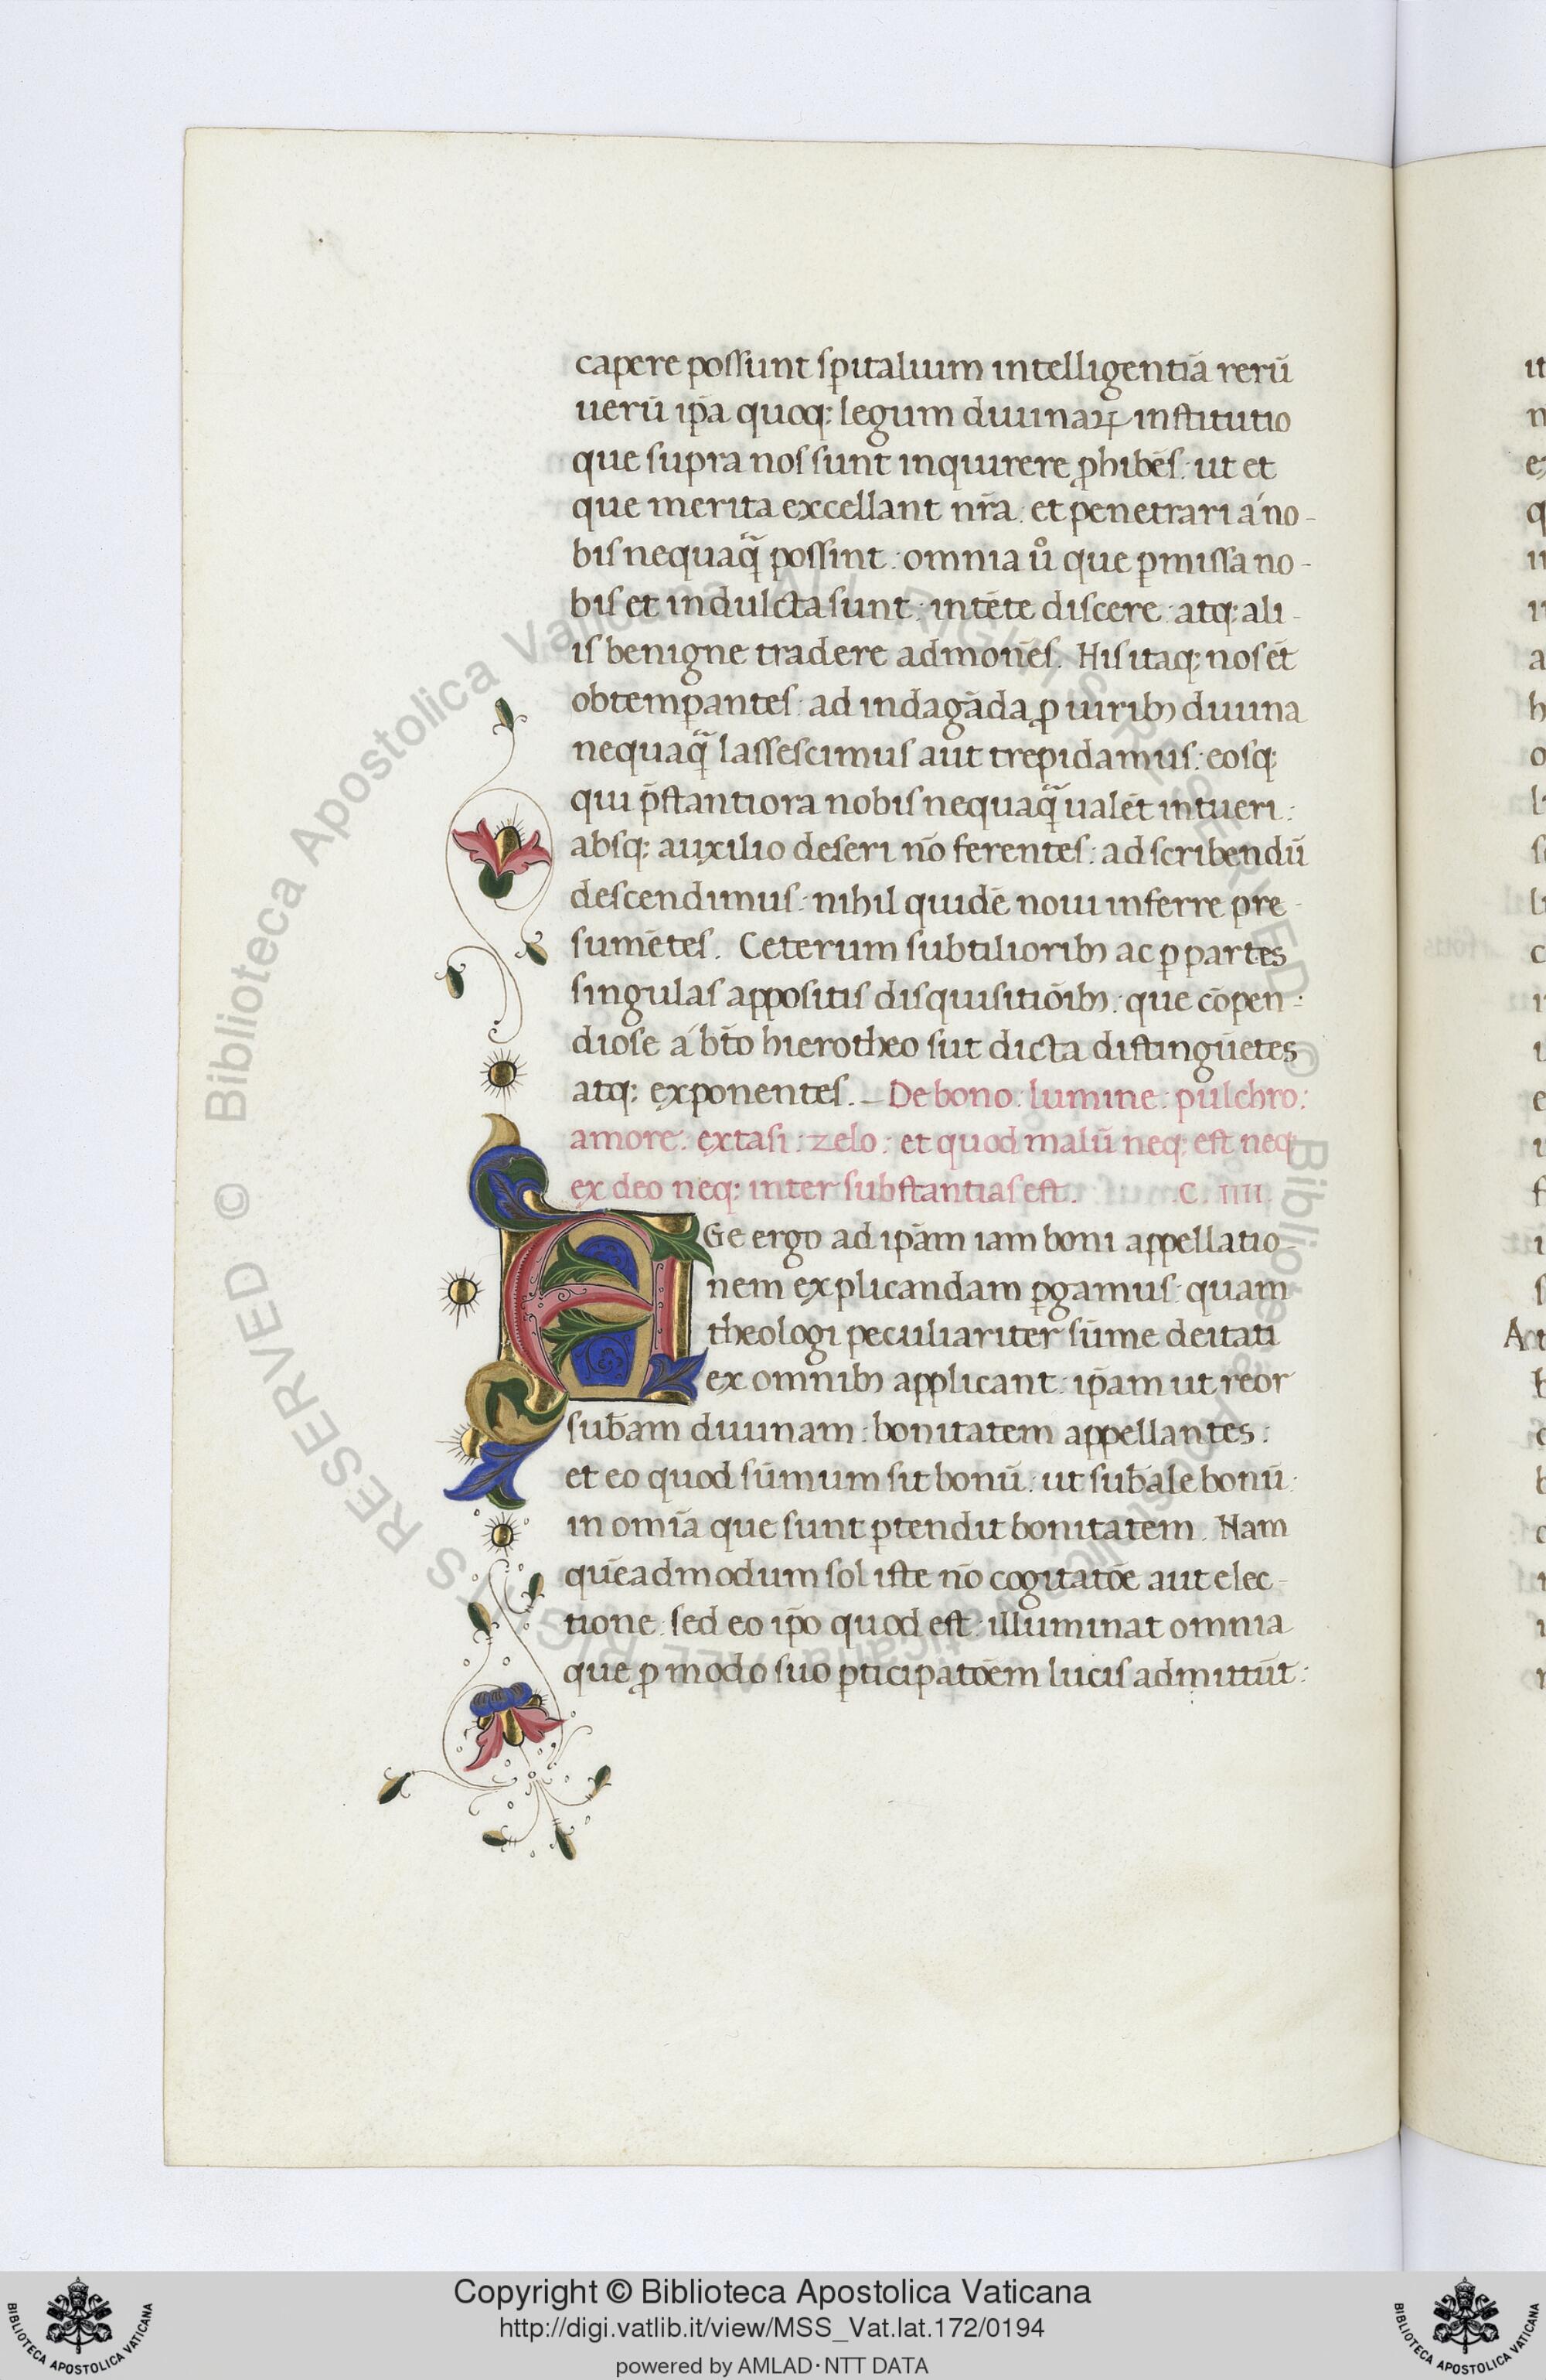 capere possunt sp̄italium intelligentiā rerū
uerū ip̄a quoq: legum diuinaꝝ institutio
que supra nos sunt inquirere ꝓhibēs: ut et
que merita excellant nr̄a: et penetrari á no-
bis nequaq̃ possint: omnia ůo que ꝑmissa no-
bis et indulcta sunt: intēte discere: atq: ali-
is benigne tradere admonēs. His itaq: nos ēt
obtemꝑantes: ad indagāda ꝓ uiribꝫ diuina
nequaq̃ lassescimus aut trepidamus: eosq:
qui p̄stantiora nobis nequaq̃ ualēt intueri:
absq: auxilio deseri nō ferentes: ad scribendū
descendimus: nihil quidē noui inferre pre-
sumētes. Ceterum subtilioribꝫ ac ꝑ partes
singulas appositis disquisitiōibꝫ: que cōpen-
diose á bt̄o hierotheo sūt dicta distingūetes
atq: exponentes. De bono: lumine: pulchro:
amore: extasi: zelo: et quod malū neq: est neq
ex deo neq: inter substantias est. .C. IIII.
AGe ergo ad ipām iam boni appellatio-
nem explicandam ꝑgamus: quam
theologi peculiariter sūme deitati
ex omnibꝫ applicant: ip̄am ut reor
sub̄am diuinam: bonitatem appellantes:
et eo quod sūmum sit bonū: ut sub̄ale bonū:
in omīa que sunt ꝑtendit bonitatem. Nam
quēadmodum sol iste nō cogitatōe aut elec-
tione: sed eo ip̄o quod est: illuminat omnia
que ꝓ modo suo ꝑticipatōem lucis admittūt:
© Biblioteca Apostolica Vaticana ALL RIGHTS RESERVED
Copyright © Biblioteca Apostolica Vaticana
http://digi.vatlib.it/view/MSS_Vat.lat.172/0194
powered by AMLAD·NTT DATA
BIBLIOTECA APOSTOLICA VATICANA
BIBLIOTECA APOSTOLICA VATICANA